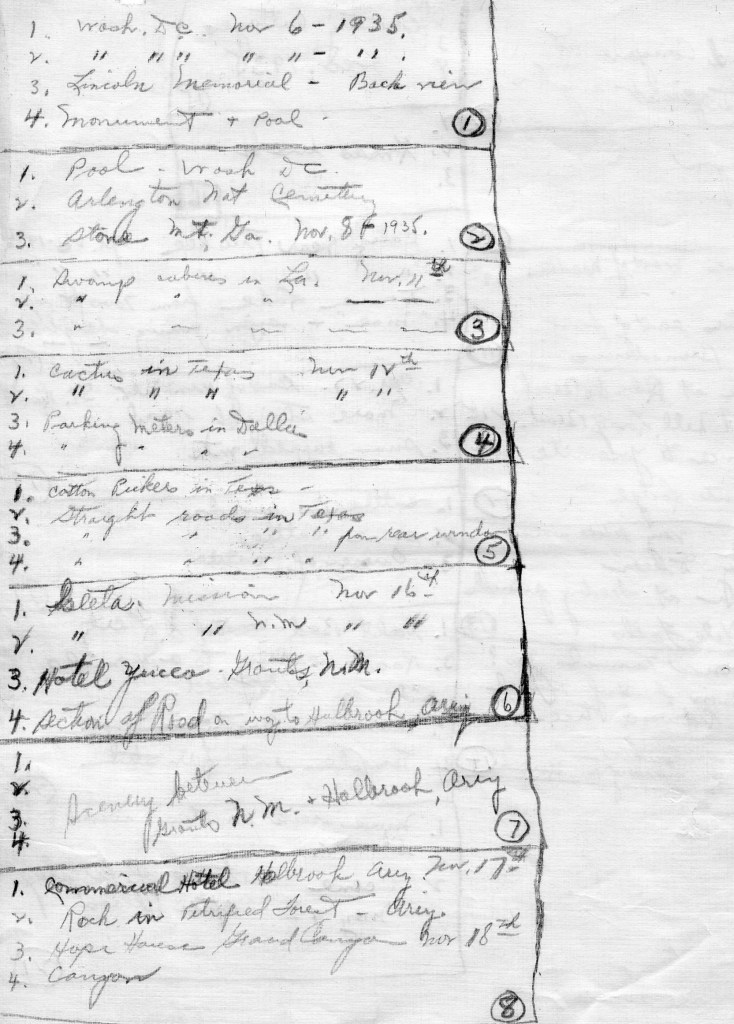 1. Wash. D.C. Nov 6 - 1935.
2. " " " " " - " " .
3. Lincoln Memorial - Back view
4. Monument + Pool - ①
1. Pool - Wash DC.
2. Arlington Nat Cemetery
3. Stone Mt, Ga. Nov. 8 - 1935. ②
1. Swamp cabins in La. Nov. 11th
2. " " " — —
3. " — — — — ③
1. Cactus in Texas Nov 12th
2. " " " " "
3. Parking meters in Dallas
4. " " " " ④
1. Cotton Pickers in Texas -
2. Straight roads in Texas
3. " " " " from rear window
4. " " " " ⑤
1. Isleta. Mission Nov 16th
2. " " N.M " "
3. Hotel Yucca - Grants, N.M.
4. Section of Road on way to Holbrook, Ariz ⑥
1.
2. Scenery between
3. Grants N.M. + Holbrook, Ariz
4. ⑦
1. Commercial Hotel Holbrook Ariz Nov. 17th
2. Rock in Petrified Forest - Ariz.
3. Hopi House Grand Canyon Nov 18th
4. Canyon
⑧